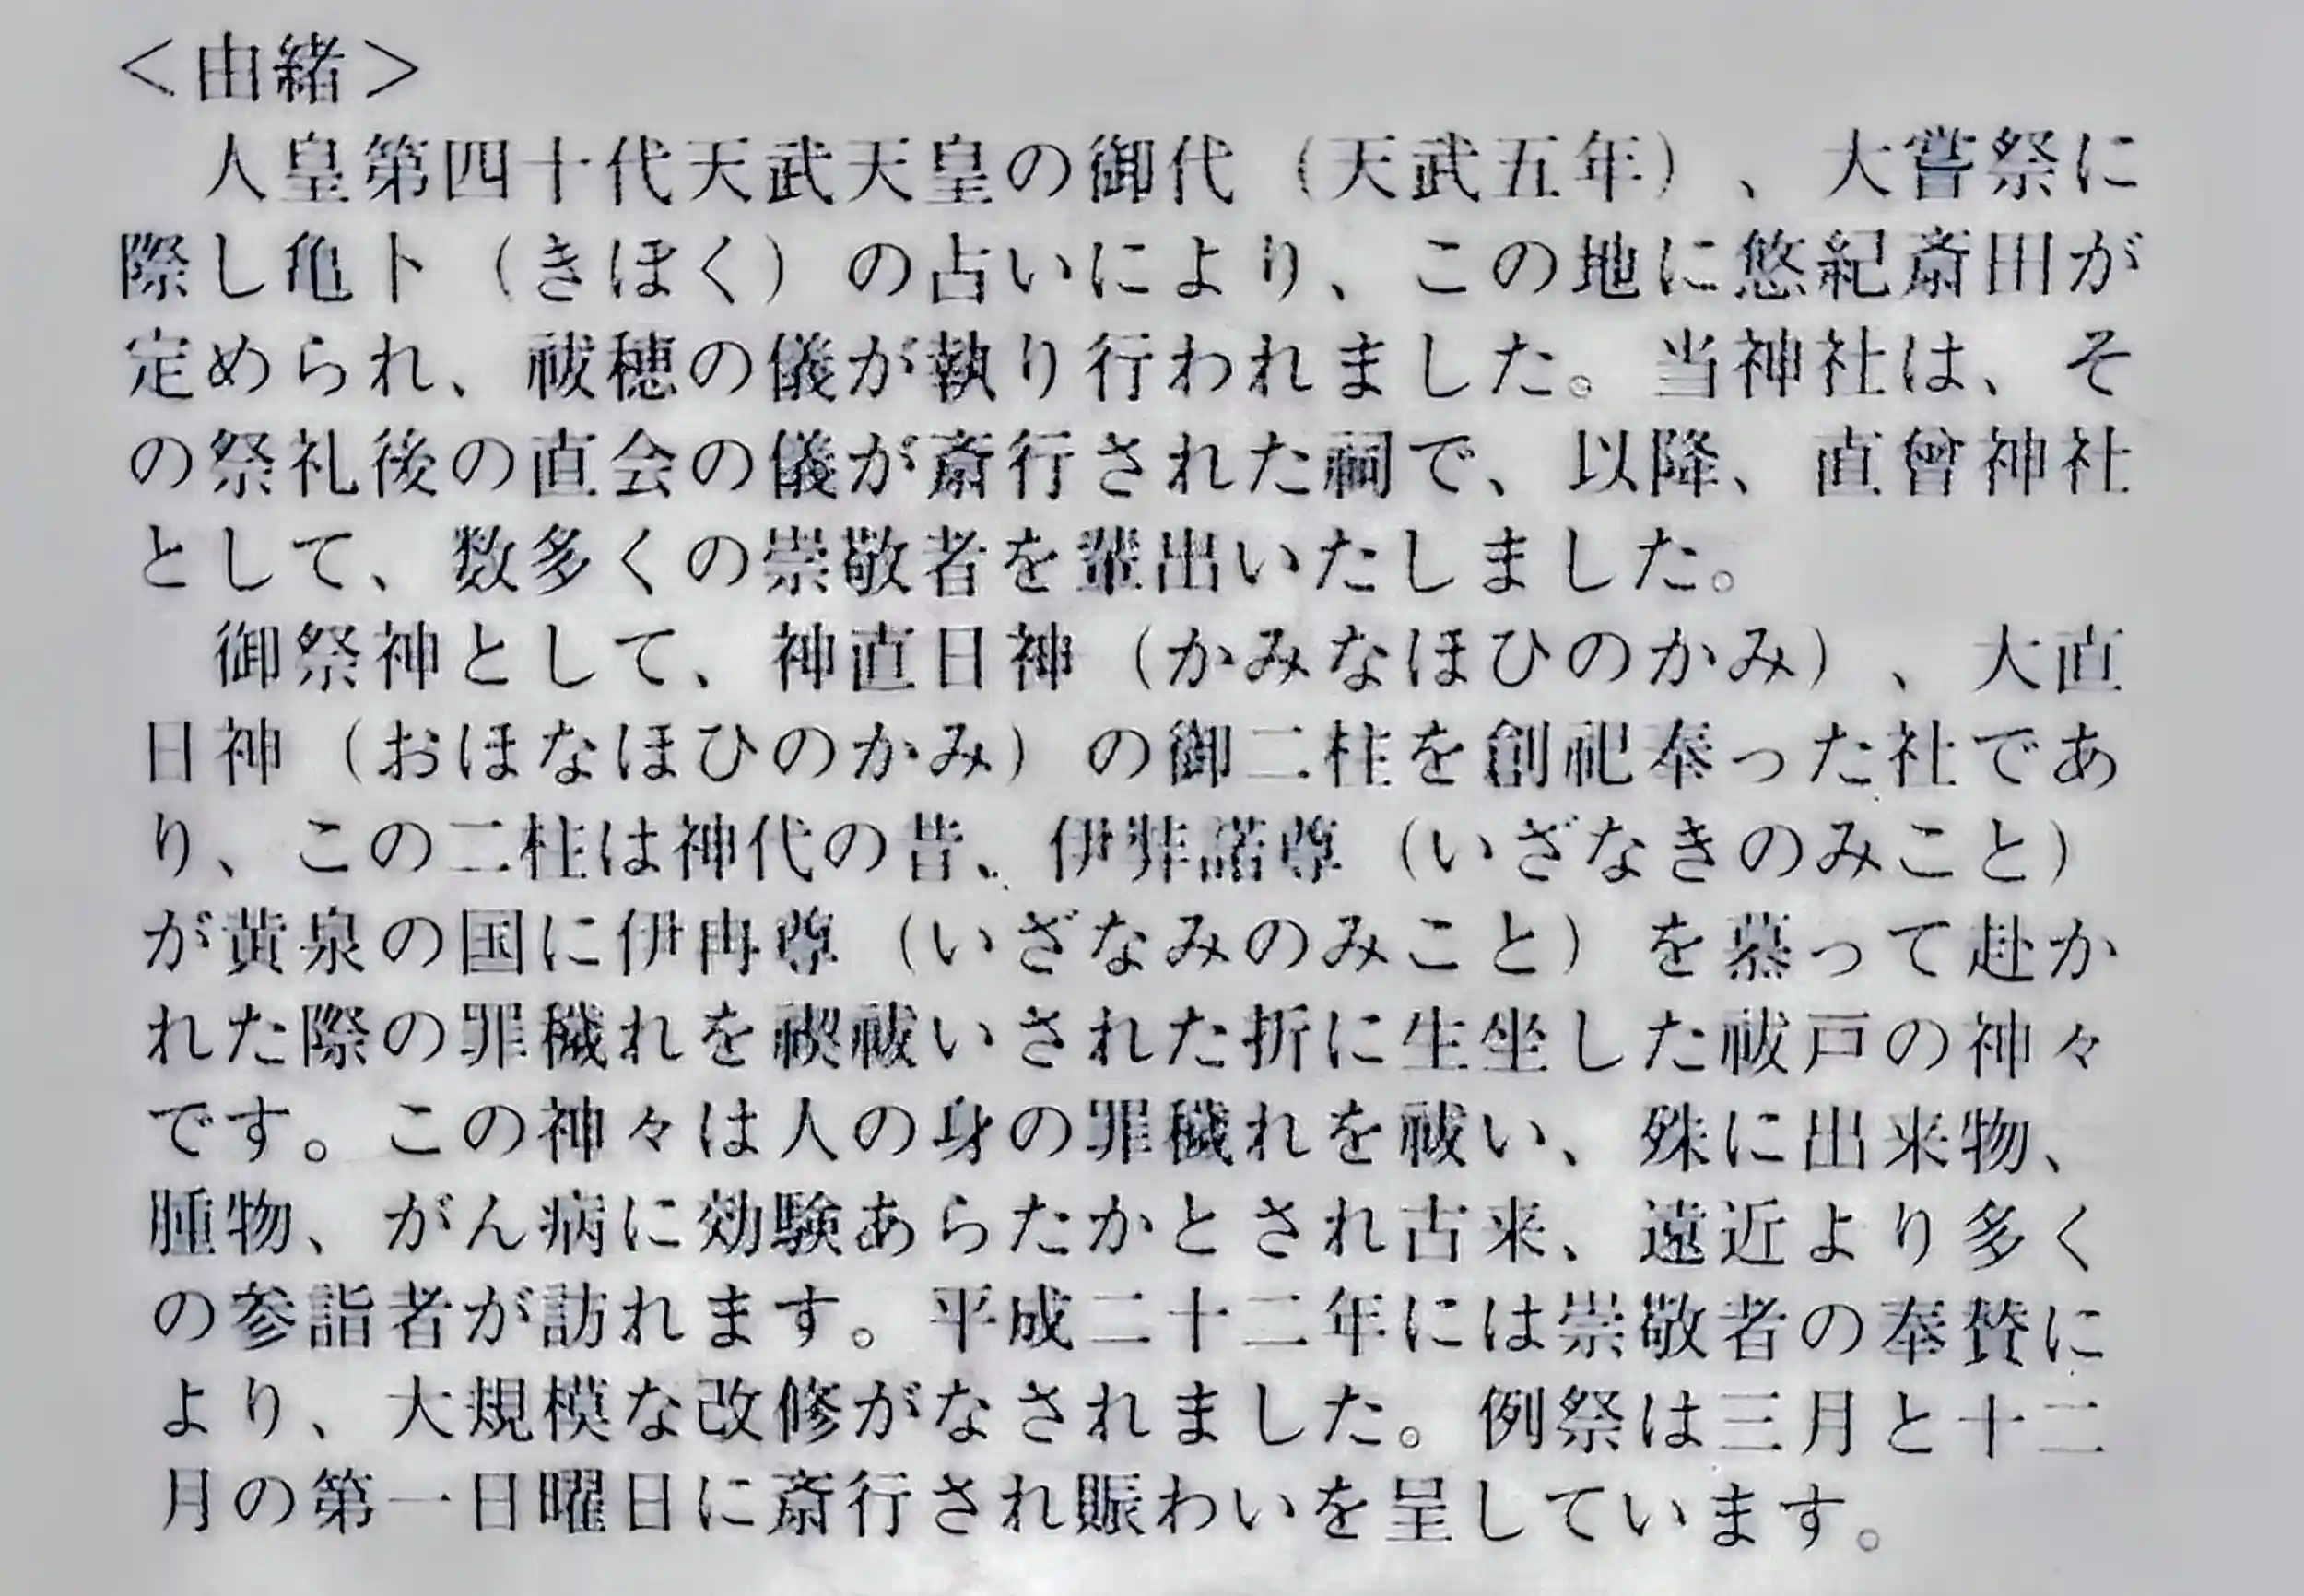 ＜由緒＞
人皇第四十代天武天皇の御代（天武五年）、大嘗祭に
際し亀卜（きぼく）の占いにより、この地に悠紀斎田が
定められ、祓穂の儀が執り行われました。当神社は、そ
の祭礼後の直会の儀が斎行された祠で、以降、直曾神社
として、数多くの崇敬者を輩出いたしました。
御祭神として、神直日神（かみなほひのかみ）、大直
日神（おほなほひのかみ）の御二柱を創祀奉った社であ
り、この二柱は神代の昔、伊弉諾尊（いざなきのみこと）
が黄泉の国に伊冉尊（いざなみのみこと）を慕って赴か
れた際の罪穢れを禊祓いされた折に生坐した祓戸の神々
です。この神々は人の身の罪穢れを祓い、殊に出来物、
腫物、がん病に効験あらたかとされ古来、遠近より多く
の参詣者が訪れます。平成二十二年には崇敬者の奉賛に
より、大規模な改修がなされました。例祭は三月と十二
月の第一日曜日に斎行され賑わいを呈しています。